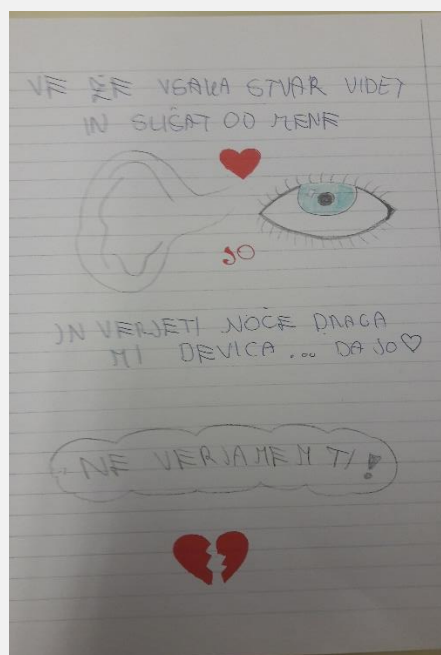 VE ŽE VSAKA STVAR VIDET
IN SLIŠAT OD MENE
JO
IN VERJETI NOČE DRAGA
MI DEVICA... DA JO ♡
NE VERJAMEM TI!